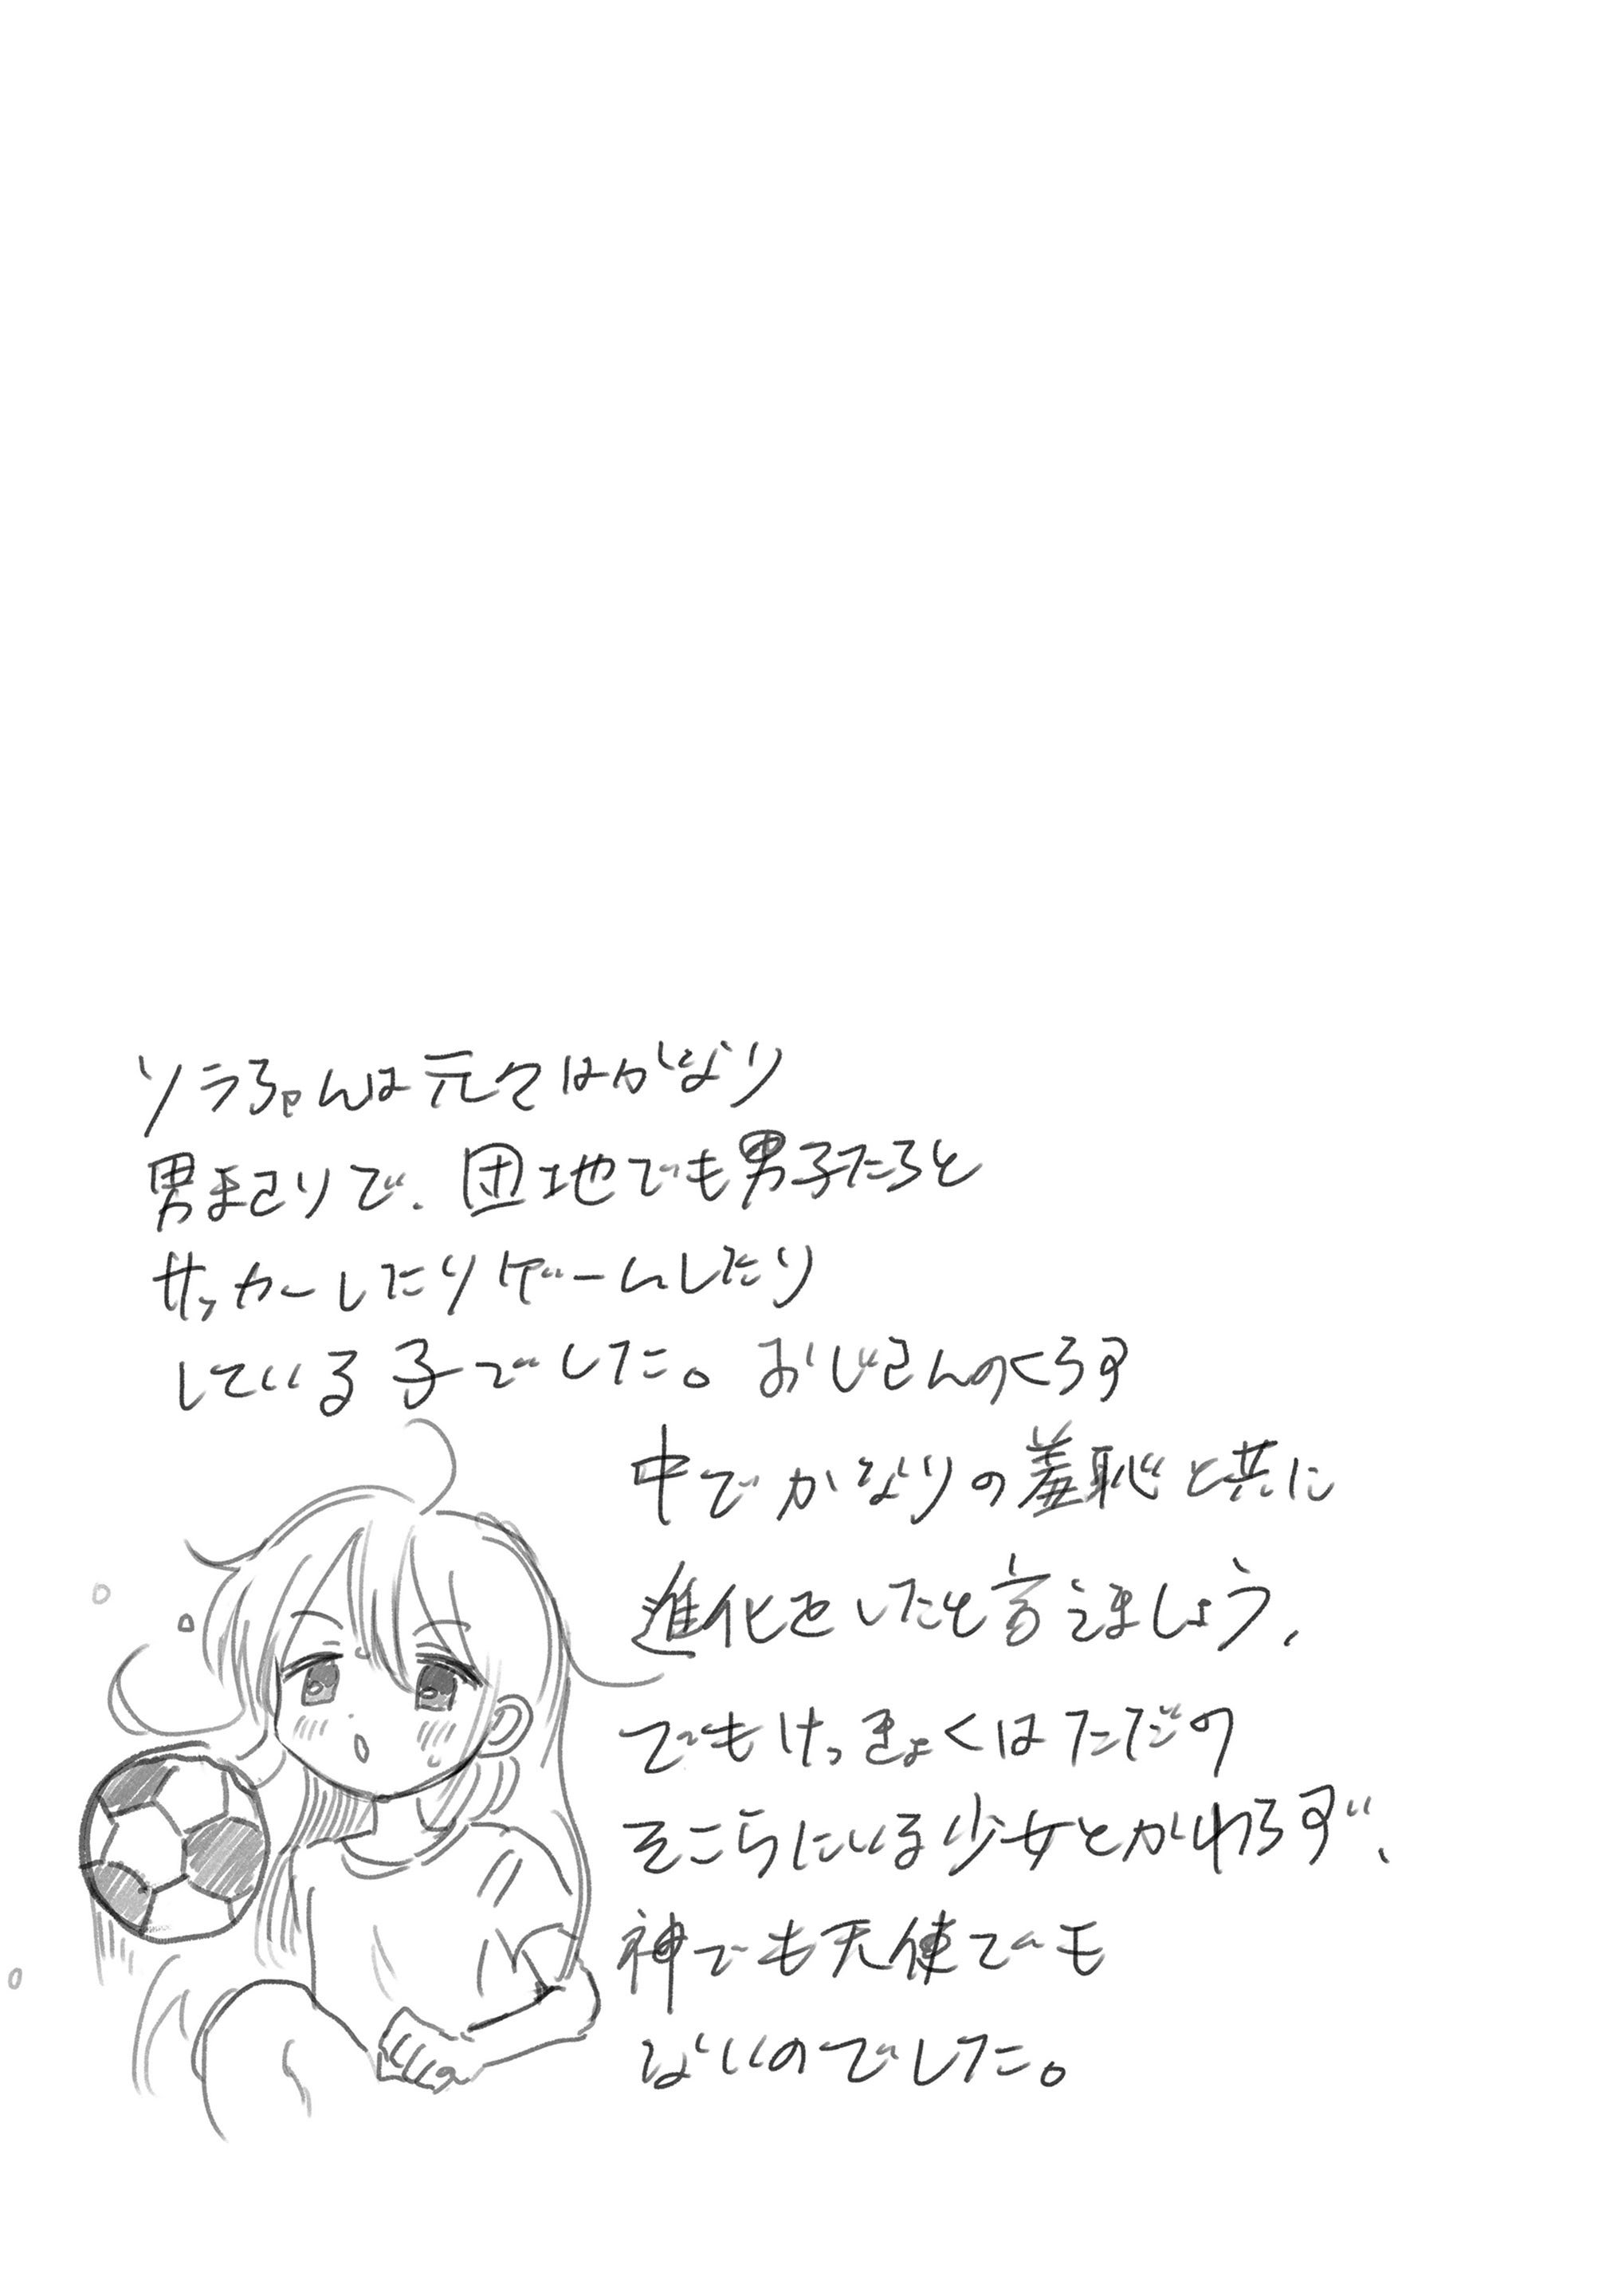 ソラちゃんは元々はかなり
男まさりで、団地でも男子たちと
サッカーしたりゲームしたり
している子でした。おじさんのくらす
中でかなりの羞恥と共に
進化をしたと言えましょう、
でもけっきょくはただの
そこらにいる少女とかわらず、
神でも天使でも
ないのでした。